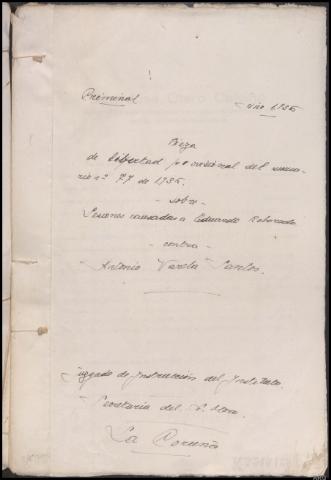 Criminal
Año 1936
Pieza
de libertad provisional del suma-
rio nº 77 de 1936.
- sobre -
Lesiones causadas a Eduardo
- contra -
Antonio Varela Santos.
Juzgado de Instrucción del Instituto.
Secretaría del
La Coruña